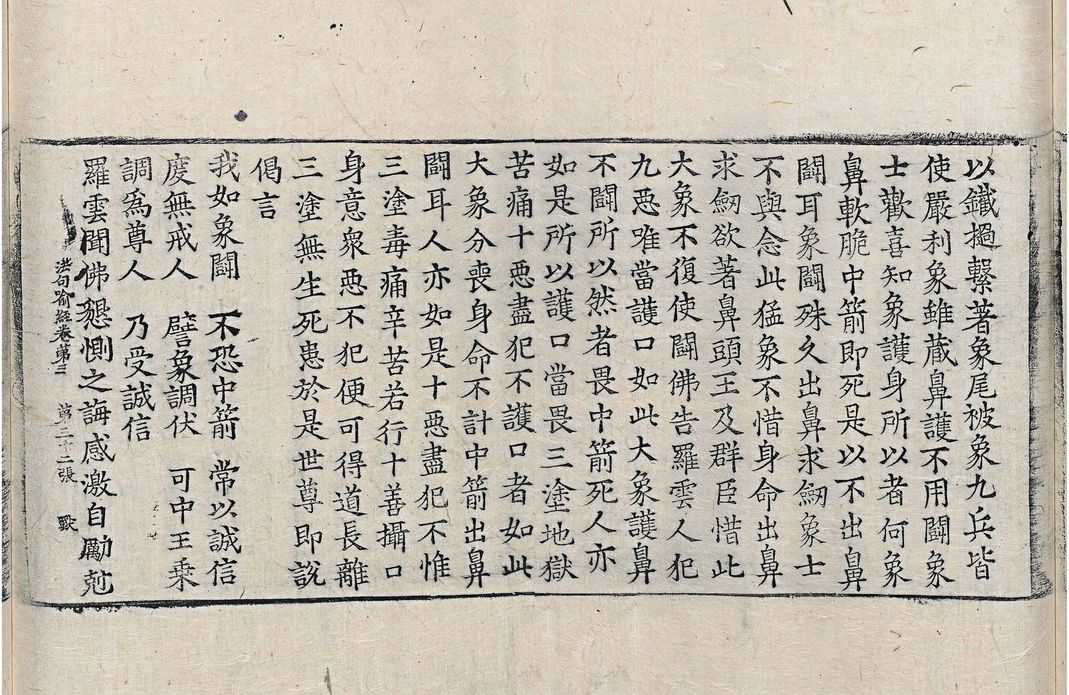 以鐵撾繫著象尾被象九兵皆
使嚴利象雖藏鼻護不用鬪象
士歡喜知象護身所以者何象
鼻軟脆中箭即死是以不出鼻
鬪耳象鬪殊久出鼻求劒象士
不與念此猛象不惜身命出鼻
求劒欲著鼻頭王及群臣惜此
大象不復使鬪佛告羅雲人犯
九惡唯當護口如此大象護鼻
不鬪所以然者畏中箭死人亦
如是所以護口當畏三塗地獄
苦痛十惡盡犯不護口者如此
大象分喪身命不計中箭出鼻
鬪耳人亦如是十惡盡犯不惟
三塗毒痛辛苦若行十善攝口
身意衆惡不犯便可得道長離
三塗無生死患於是世尊即說
偈言
我如象鬪　不恐中箭　常以誠信
度無戒人　譬象調伏　可中王乘
調爲尊人　乃受誠信
羅雲聞佛懇惻之誨感激自勵尅
法句喻經卷第三　第二十二張